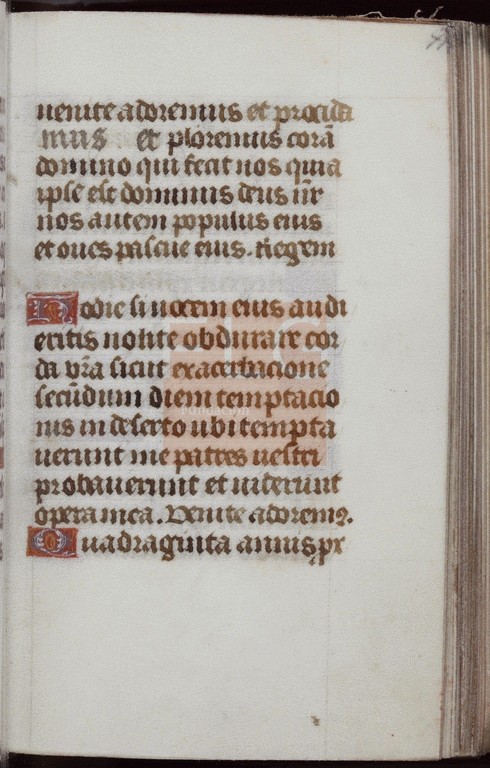 uenite adoremus et procida
mus et ploremus corā
domino qui fecit nos quia
ipse est dominus deus nr̄
nos autem populus eius
et oues pascue eius. Regem
Hodie si uocem eius audi
eritis nolite obdurare cor
da vr̄a sicut exacerbacione
secūdum diem temptacio
nis in deserto ubi tempta
uerunt me patres uestri
probauerunt et uiderunt
opera mea. Venite adorem⁹.
Quadraginta annis px
Fundación